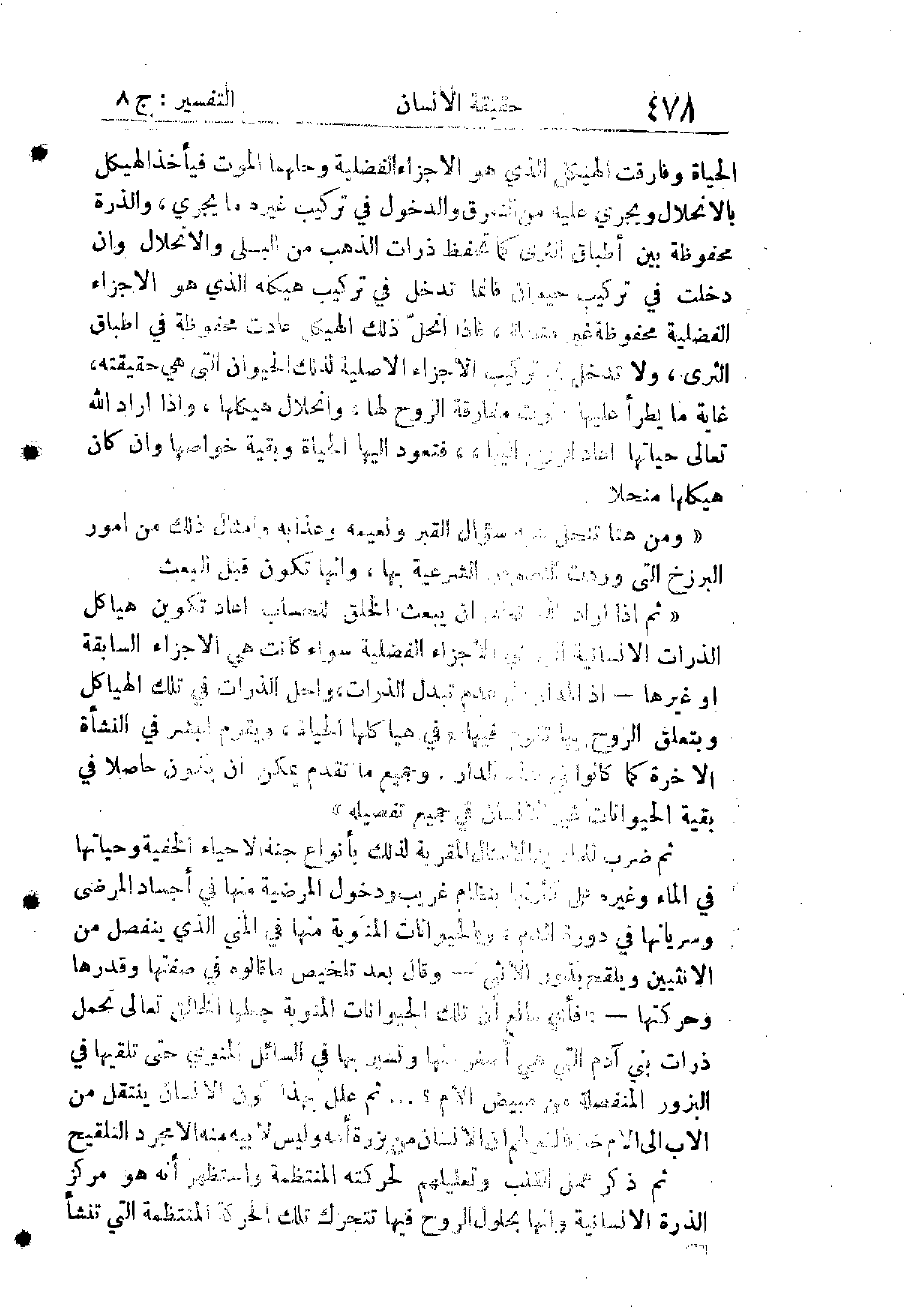 ٤٧٨ حقيقة الأنسان التفسير : ج ٨
الحياة وفارقت الهيكل الذي هو الاجزاء الفضلية وحلهما الموت فيأخذ الهيكل
بالانحلال ويجري عليه من التفرق والدخول في تركيب غيره ما يجري ، والذرة
محفوظة بين أطباق الثرى كما تحفظ ذرات الذهب من البلى والانحلال وان
دخلت في تركيب حيوان فانما تدخل في تركيب هيكله الذي هو الاجزاء
الفضلية محفوظة غير ، فاذا انحلّ ذلك الهيكل عادت محفوظة في اطباق
الثرى ، ولا تدخل في تركيب الأجزاء الاصلية لذلك الحيوان التى هي حقيقته ،
غاية ما يطرأ عليها موت مفارقة الروح لها ، وانحلال هيكلها ، واذا اراد الله
تعالى حياتها اعاد الروح اليها ، ، فتعود اليها الحياة وبقية خواصها وان كان
هيكلها منحلا
« ومن هنا تنحل سؤال القبر ونعيمه وعذابه وامثال ذلك من امور
البرزخ التى وردت النصوص الشرعية بها ، وانها تكون قبل البعث
« ثم اذا اراد الله تعالى ان يبعث الخلق للحساب اعاد تكوين هياكل
الذرات الانسانية التي هي الاجزاء الفضلية سواء كانت هي الاجزاء السابقة
او غيرها — اذ المدار على عدم تبدل الذرات ، واحل الذرات في تلك الهياكل
وبتعلق الروح بها تقوم فيها وفي هياكلها الحياة ، ويقوم البشر في النشأة
الآخرة كما كانوا في هذه الدار . وجميع ما تقدم يمكن ان يكون حاصلا في
بقية الحيوانات غير الانسان في جميع تفصيله »
ثم ضرب للماديين الامثال المقربة لذلك بأنواع جنة الاحياء الخفية وحياتها
في الماء وغيره على بنظام غريب ودخول المرضية منها في أجساد المرضى
وسريانها في دورة الدم ، وبالحيوانات المنوية منها في المني الذي ينفصل من
الانثيين ويلقح بذور الأنثى — وقال بعد تلخيص ما قالوه في صفتها وقدرها
وحركتها — : فأي مانع أن تلك الحيوانات المنوية جعلها الخالق تعالى تحمل
ذرات بني آدم التي هي أصغر منها وتسير بها في السائل المنوي حتى تلقيها في
البزور المنفصلة من مبيض الأم ؟ ... ثم علل بهذا كون الانسان ينتقل من
الاب الى الام خلافا لقولهم ان الانسان من بزرة أمه وليس لابيه منه الا مجرد التلقيح
ثم ذكر عمل القلب وتعليلهم لحركته المنتظمة واستظهر أنه هو مركز
الذرة الانسانية وانها بحلول الروح فيها تتحرك تلك الحركة المنتظمة التي تنشأ